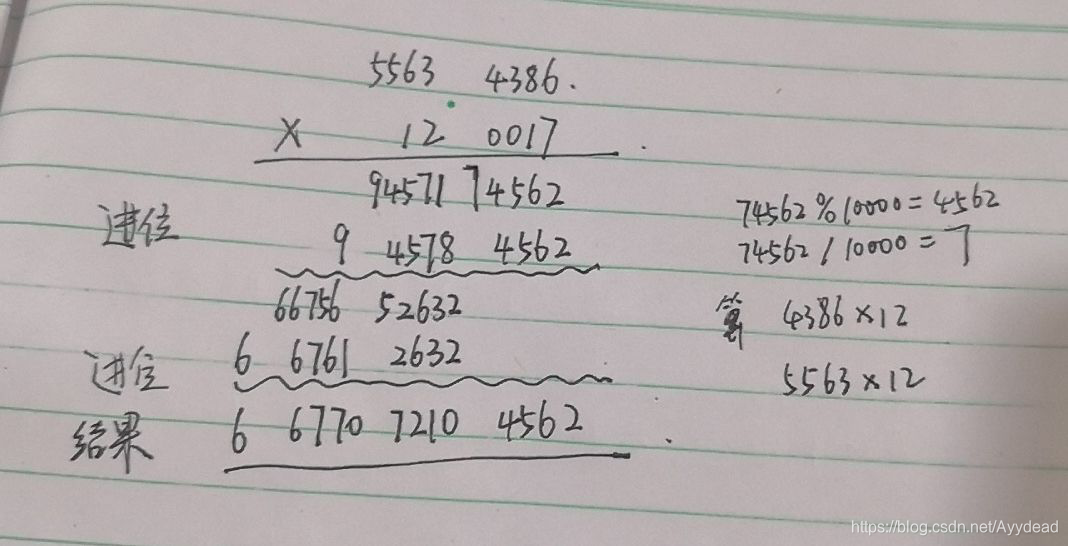 5563 4386.
× 12 0017
94571 74562
进位 9 4578 4562
66756 52632
进位 6 6761 2632
结果 6 6770 7210 4562
74562 % 10000 = 4562
74562 / 10000 = 7
算 4386 × 12
5563 × 12
https://blog.csdn.net/Ayydead